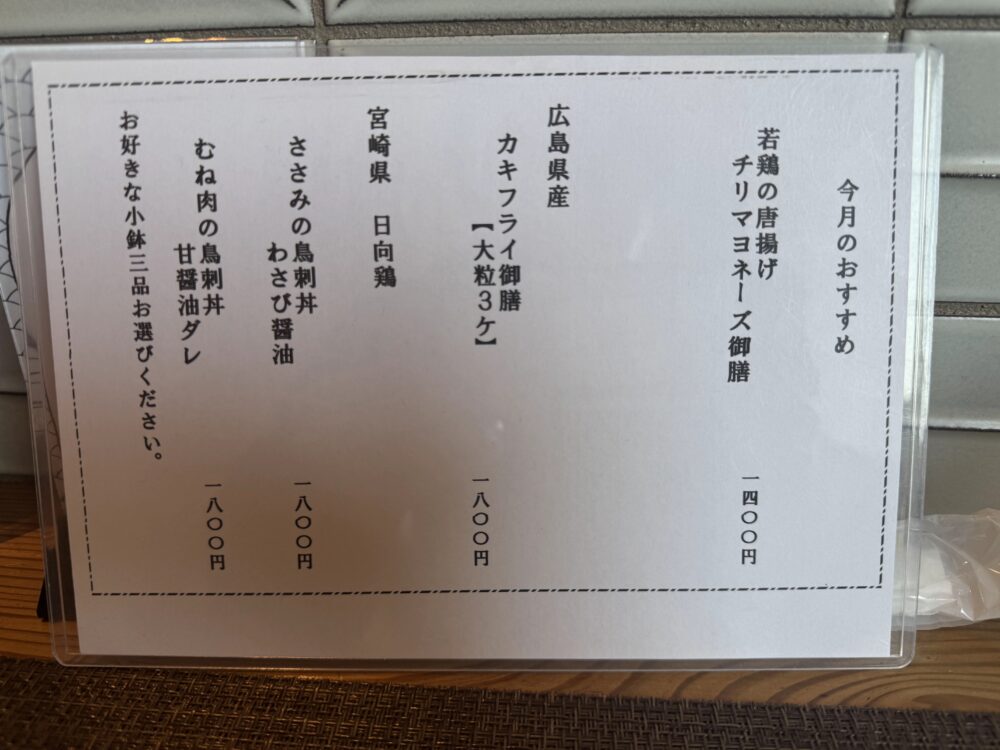 今月のおすすめ
若鶏の唐揚げ
チリマヨネーズ御膳
一四〇〇円
広島県産
カキフライ御膳
【大粒３ケ】
一八〇〇円
宮崎県　日向鶏
ささみの鳥刺丼
わさび醤油
一八〇〇円
むね肉の鳥刺丼
甘醤油ダレ
一八〇〇円
お好きな小鉢三品お選びください。